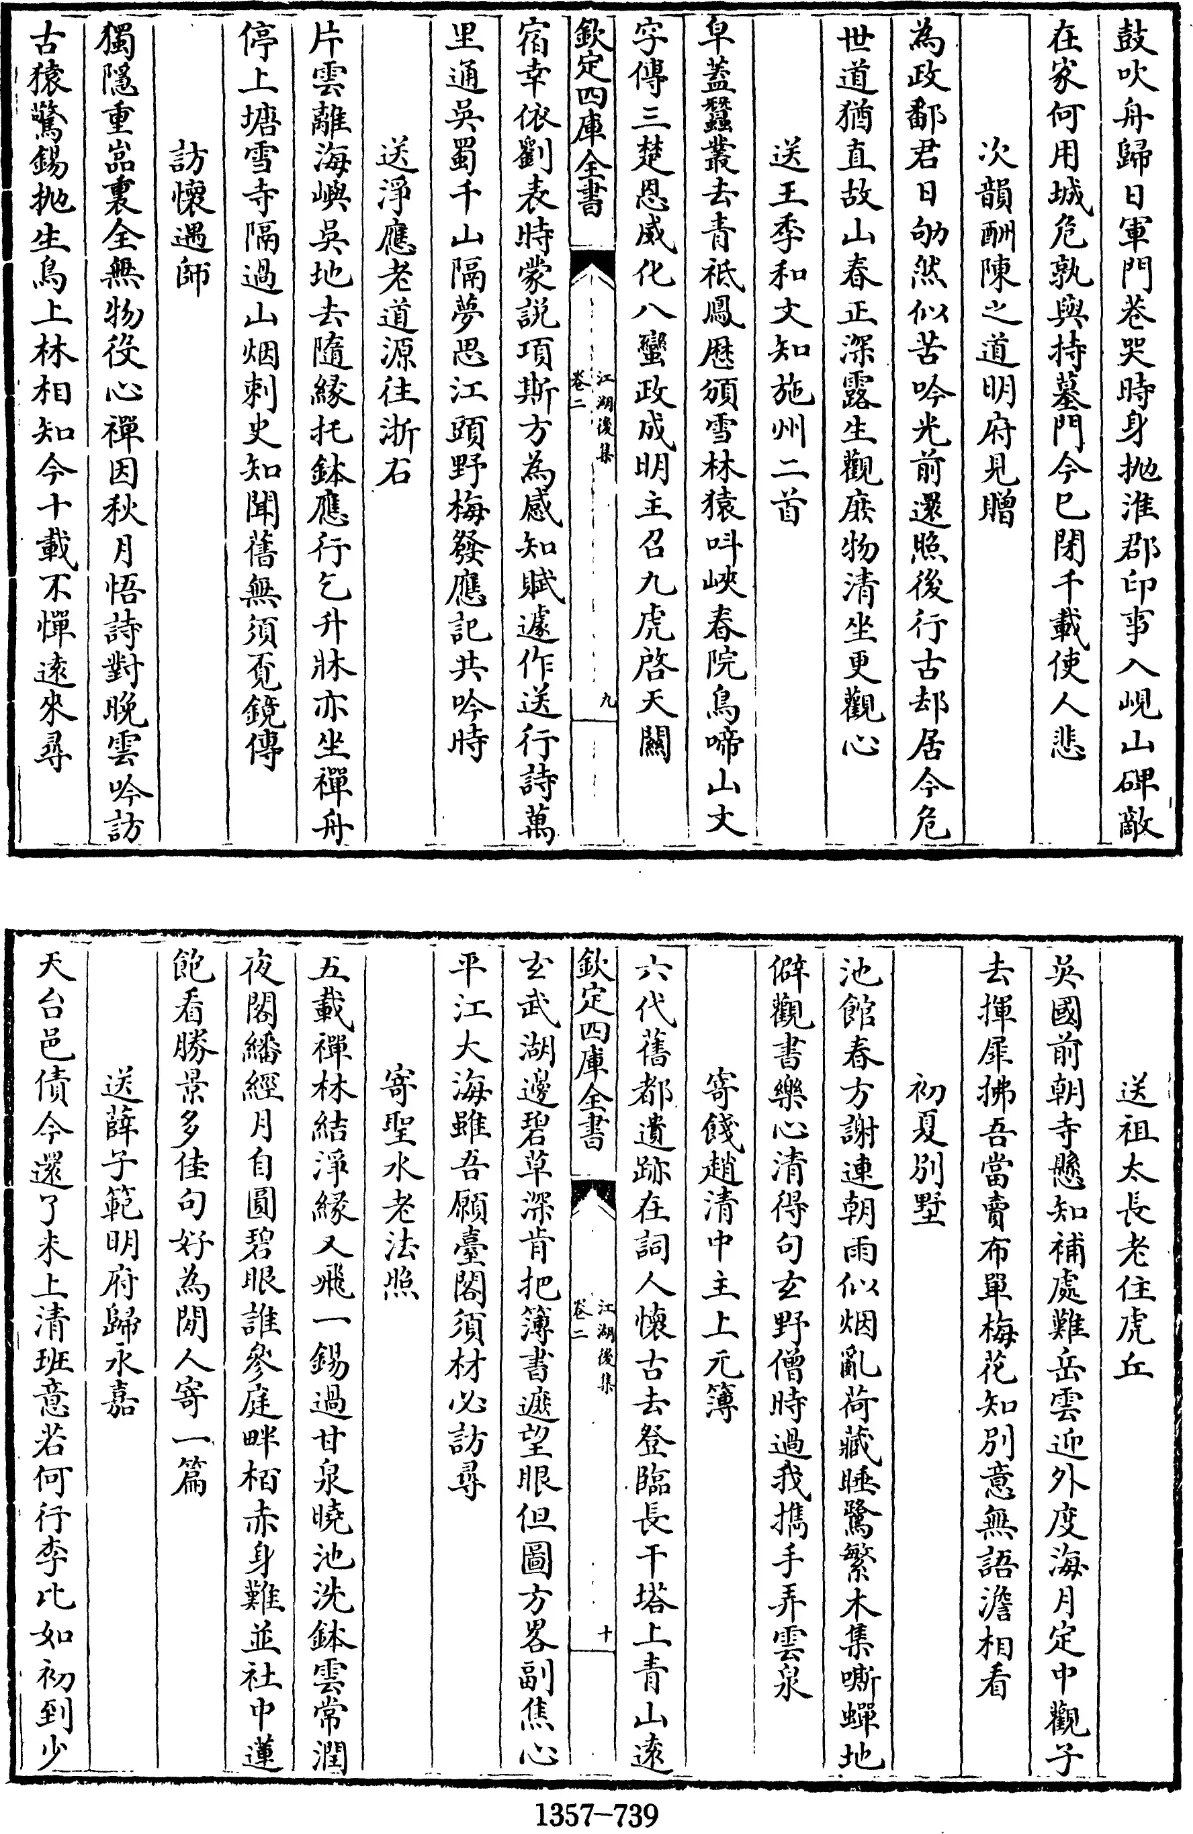 鼓吹舟歸日軍門巷哭時身拋淮郡印事入峴山碑敵
在家何用城危孰與持墓門今已閉千載使人悲
次韻酬陳之道明府見贈
為政鄱君日劬然似苦吟光前還照後行古却居今危
世道猶直故山春正深露生觀庶物清坐更觀心
送王季和文知施州二首
皁蓋蠶叢去青祗鳳厯頒雪林猿呌峽春院鳥啼山文
字傳三楚恩威化八蠻政成明主召九虎啓天關
欽定四庫全書
江湖後集
卷二
九
宿幸依劉表時蒙説項斯方為感知賦遽作送行詩萬
里通吳蜀千山隔夢思江頭野梅發應記共吟時
送淨應老道源往浙右
片雲離海嶼吳地去隨緣托鉢應行乞升牀亦坐禪舟
停上塘雪寺隔過山烟刺史知聞舊無須覓鏡傳
訪懷遇師
獨隱重嵓裏全無物役心禪因秋月悟詩對晚雲吟訪
古猿驚錫拋生鳥上林相知今十載不憚遠來尋
送祖太長老住虎丘
吳國前朝寺懸知補處難岳雲迎外度海月定中觀子
去揮犀拂吾當賣布單梅花知別意無語澹相看
初夏別墅
池館春方謝連朝雨似烟亂荷藏睡鷺繁木集嘶蟬地
僻觀書樂心清得句玄野僧時過我攜手弄雲泉
寄餞趙清中主上元簿
六代舊都遺跡在詞人懷古去登臨長干塔上青山遠
欽定四庫全書
江湖後集
卷二
十
玄武湖邊碧草深肯把簿書遮望眼但圖方畧副焦心
平江大海雖吾願臺閣須材必訪尋
寄聖水老法照
五載禪林結淨緣又飛一錫過甘泉曉池洗鉢雲常潤
夜閣繙經月自圓碧眼誰參庭畔栢赤身難並社中蓮
飽看勝景多佳句好為閒人寄一篇
送薛子範明府歸永嘉
天台邑債今還了未上清班意若何行李比如初到少
1357-739